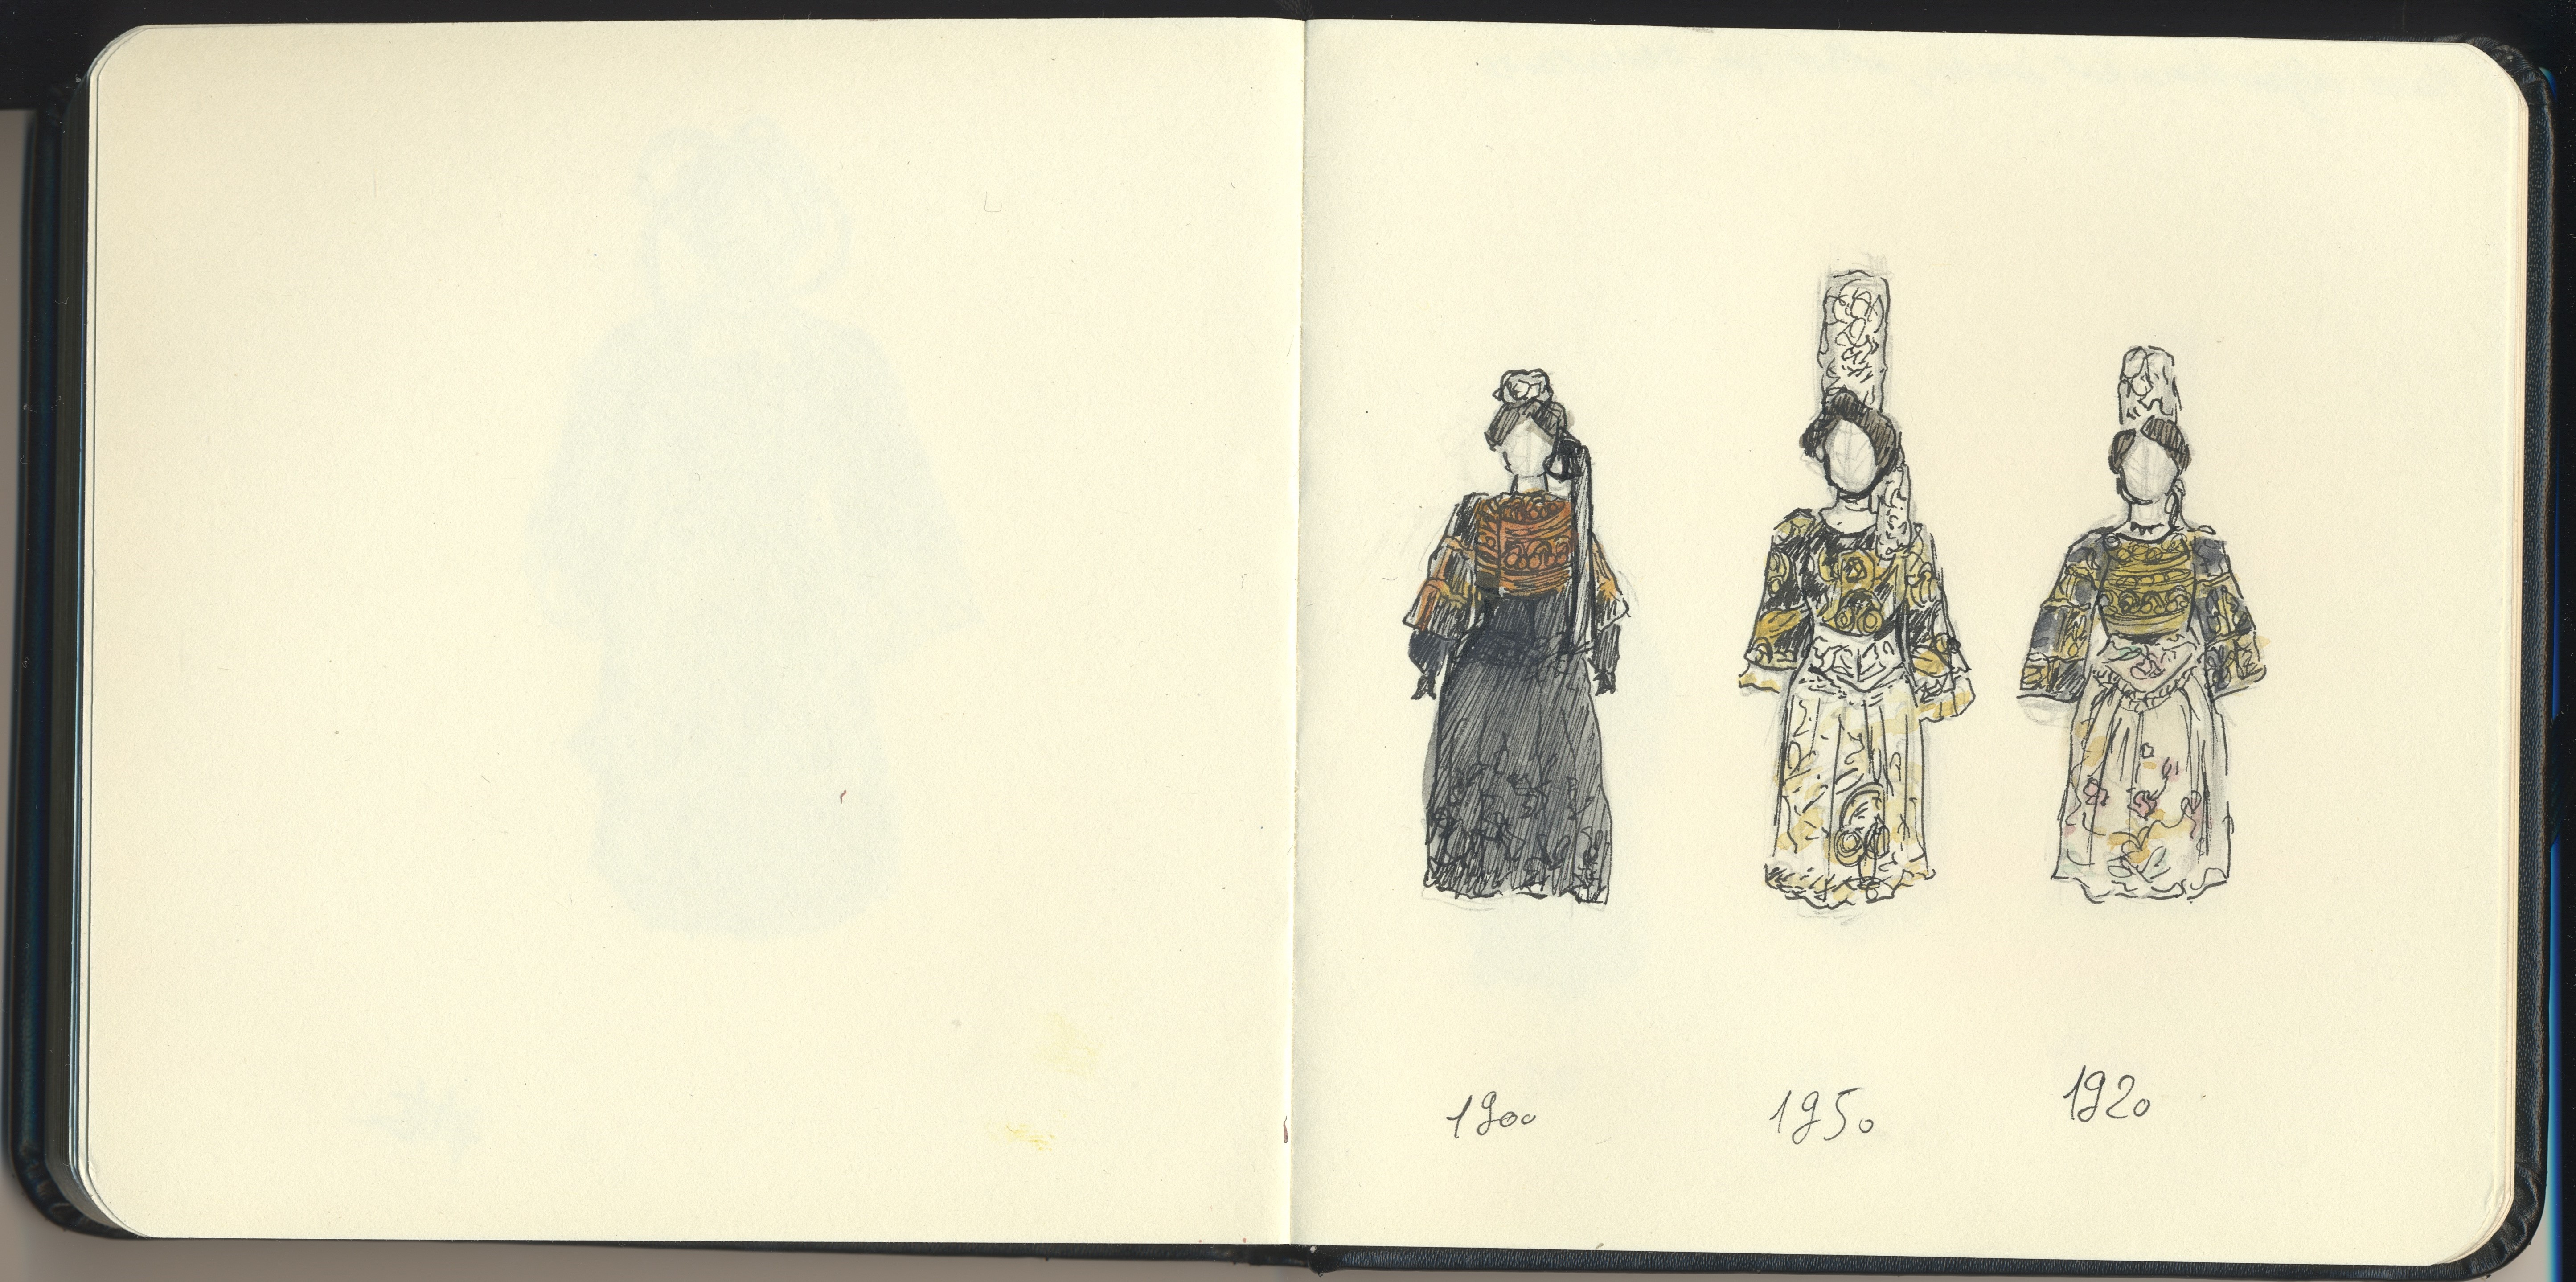 1900
1950
1920